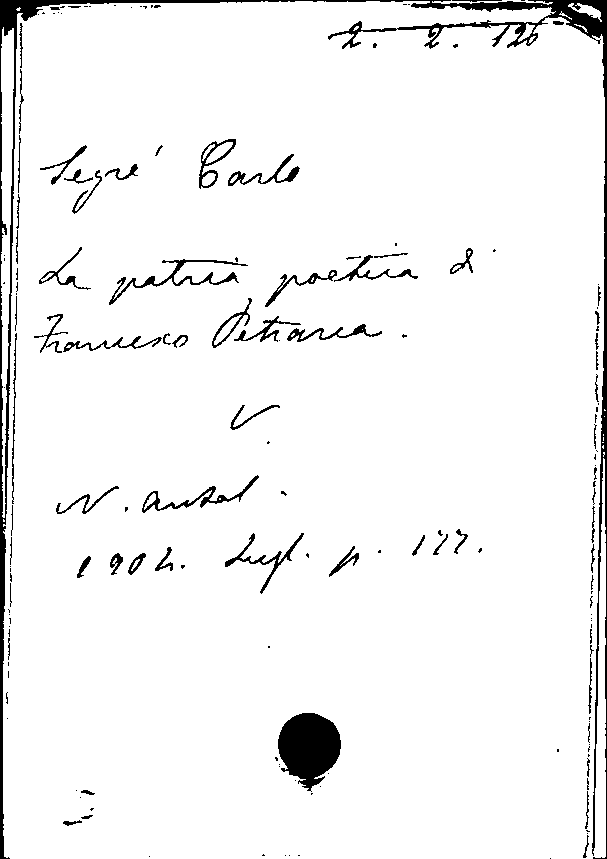 2. 2. 126
Segré Carlo
La patria poetica di
Francesco Petrarca.
V.
N. Antol.
1904. Lugl. p. 177.